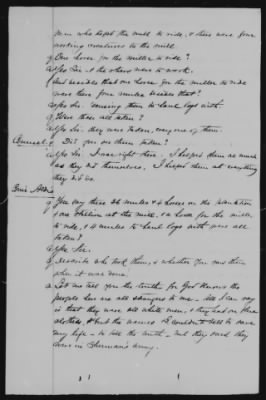 men who kept the mill to ride, & there were four
working creatures to the mill.
Q One horse for the miller to ride?
A Yes Sir - & the others were to work.
Q And besides that one horse for the miller to ride
were there four mules besides that?
A Yes Sir. among them to haul logs with.
Q Were those all taken?
A Yes Sir. they were taken, every one of them.
Q Did you see them taken?
A Yes Sir I was right there. I helped them as much
as they did themselves. I helped them at everything
they did do.
Q You say there 26 mules & 4 horses on the plantation
& one stallion at the mill, & a horse for the miller
to ride, & 4 mules to haul logs with were all
taken?
A Yes Sir.
Q Describe who took them, & whether you saw them
when it was done.
A Let me tell you the truth, for God knows the
people here are all strangers to me. All I can say
is that they were all white men, & they had on blue
clothes & but the names I couldn't tell to save
my life - to tell the truth - but they said they
were in Sherman's army.